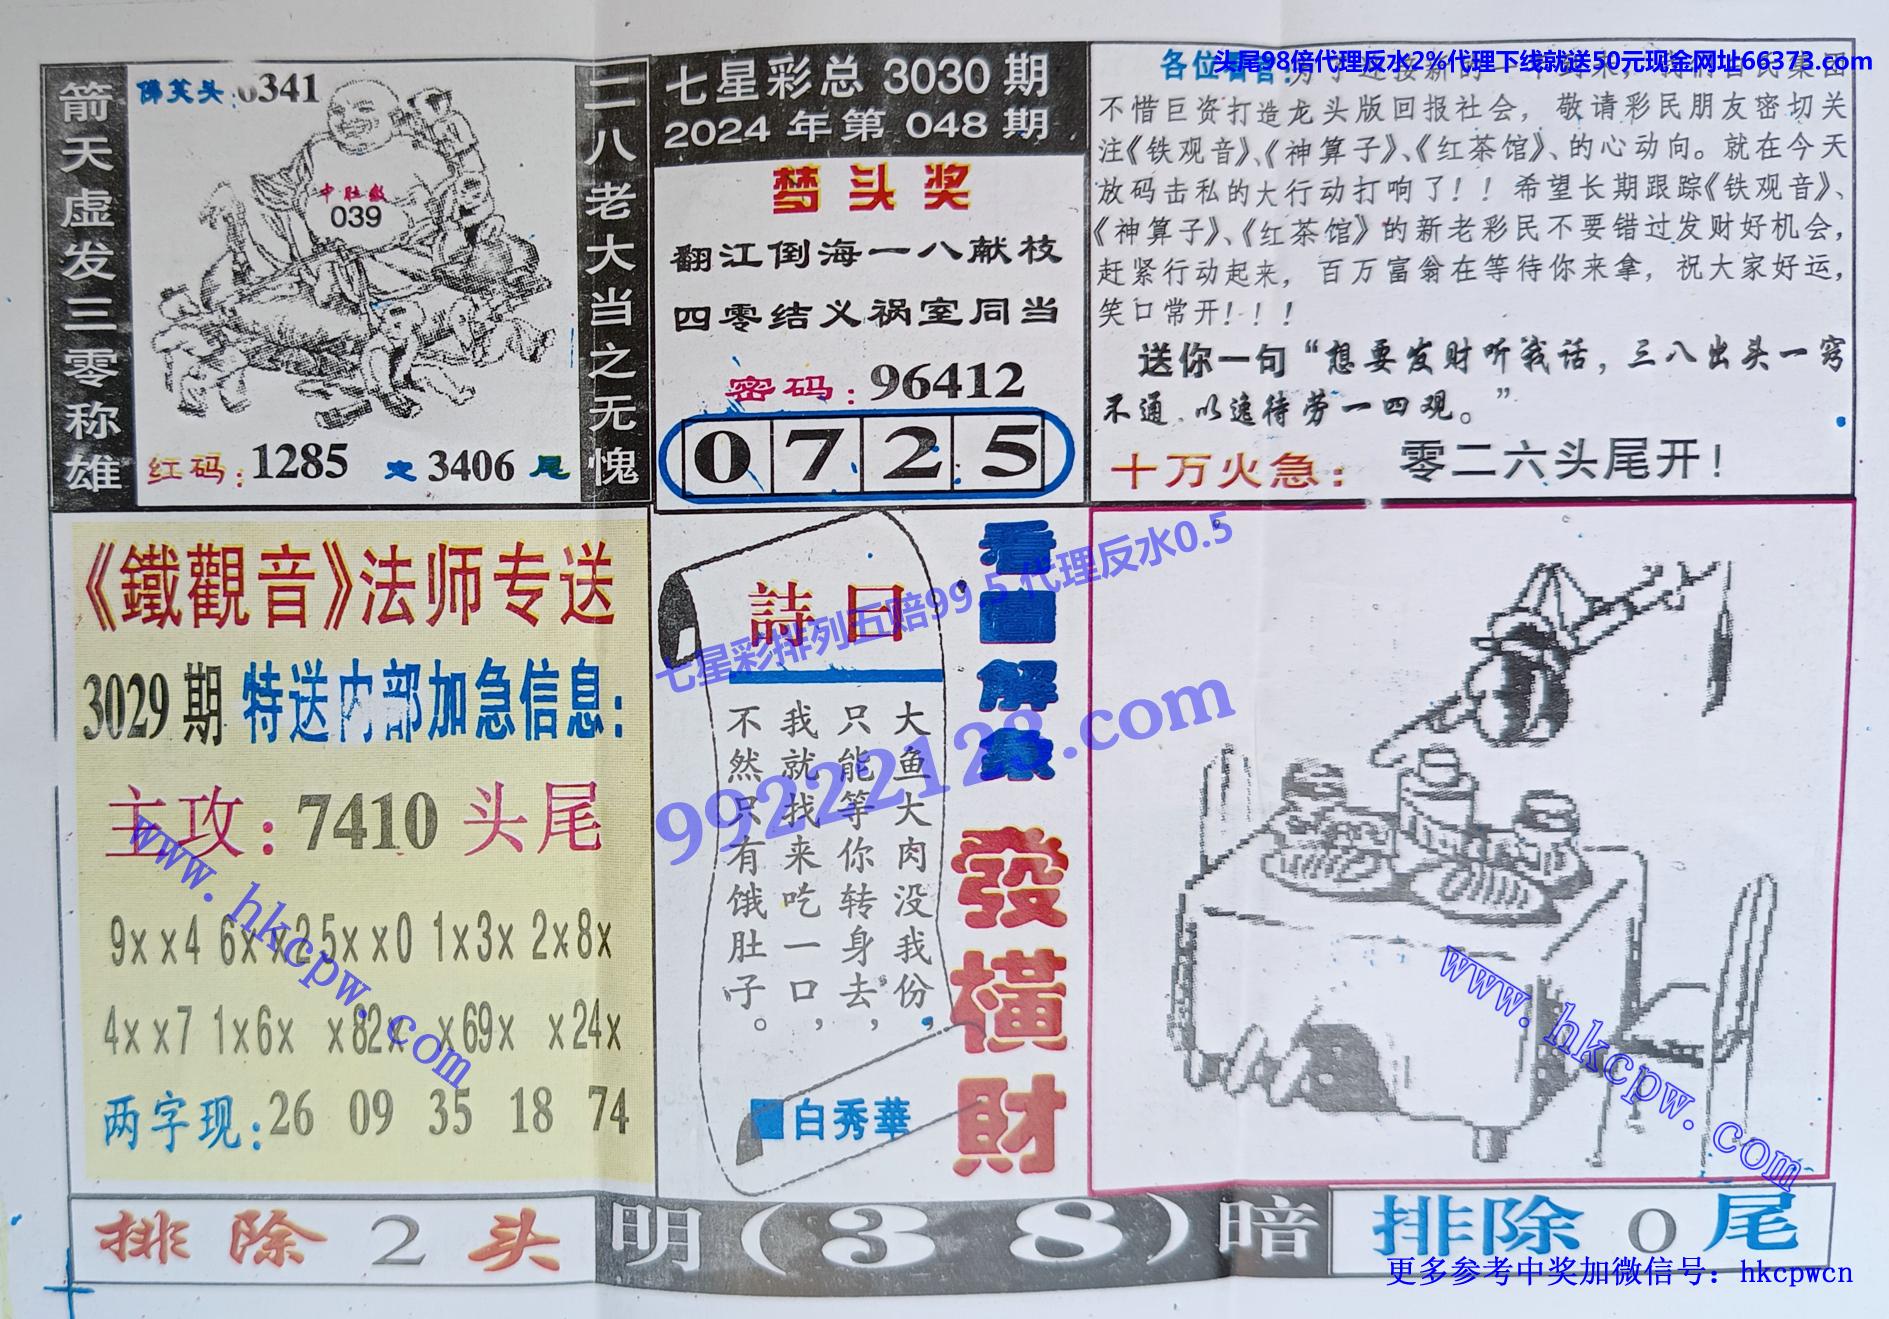 头尾98倍代理反水2%代理下线就送50元现金网址66373.com
箭天虚发三零称雄
0341
中肚缴
039
红码:1285 定3406尾
二八老大当之无愧
七星彩总3030期
2024年第048期
梦头奖
翻江倒海一八献枝
四零结义祸室同当
密码:96412
0725
各位
不惜巨资打造龙头版回报社会，敬请彩民朋友密切关
注《铁观音》、《神算子》、《红茶馆》、的心动向。就在今天
放码击私的大行动打响了！！希望长期跟踪《铁观音》、
《神算子》、《红茶馆》的新老彩民不要错过发财好机会，
赶紧行动起来，百万富翁在等待你来拿，祝大家好运，
笑口常开！！！
送你一句“想要发财听我话，三八出头一窍
不通．以逸待劳一四观。”
十万火急：零二六头尾开！
《鐵觀音》法师专送
3029期 特送内部加急信息:
主攻:7410头尾
9xx4 6xx2 5xx0 1x3x 2x8x
4xx7 1x6x x82x x69x x24x
两字现:26 09 35 18 74
詩曰
大鱼大肉没我份，
只能等你转身去，
我就找来吃一口，
不然只有饿肚子。
白秀華
看圖解象
發橫財
七星彩排列五赔99.5 代理反水0.5
99222128.com
www.hkcpw.com
www.hkcpw.com
排除2头
明(38)暗
排除0尾
更多参考中奖加微信号：hkcpwcn